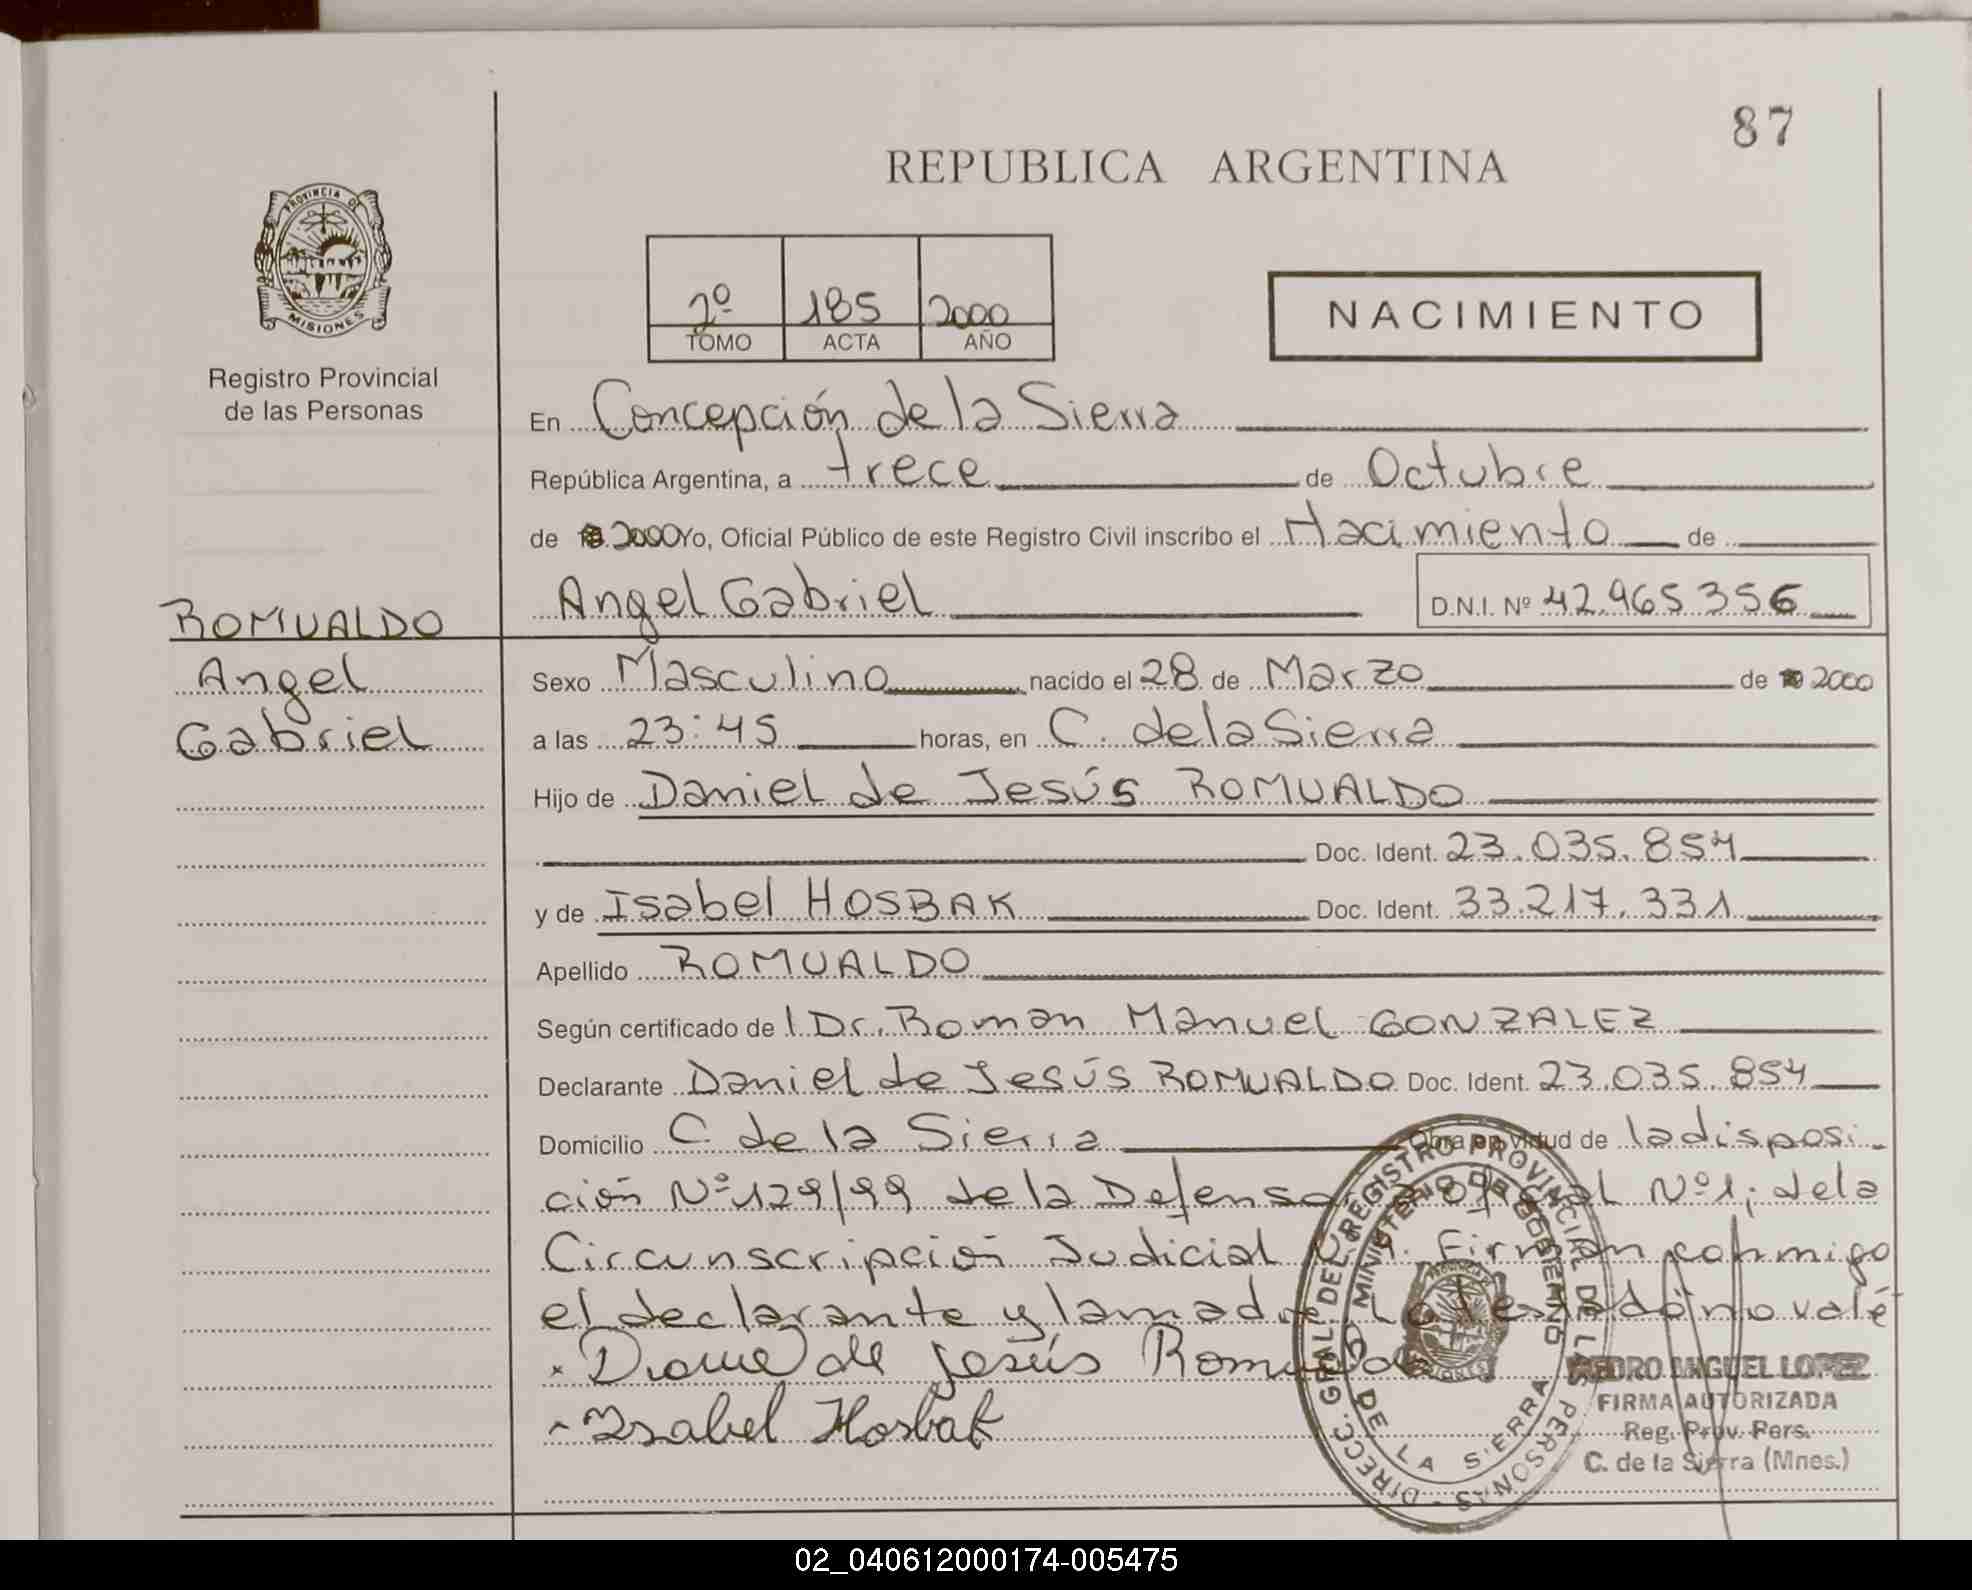 87
REPUBLICA ARGENTINA
PROVINCIA DE
MISIONES
Registro Provincial
de las Personas
2º 185 2000
TOMO ACTA AÑO
NACIMIENTO
En Concepción de la Sierra
República Argentina, a trece de Octubre
de 2000 Yo, Oficial Público de este Registro Civil inscribo el Nacimiento de
Angel Gabriel D.N.I. Nº 42.965.356
ROMUALDO
Angel
Gabriel
Sexo Masculino nacido el 28 de Marzo de 2000
a las 23:45 horas, en C. de la Sierra
Hijo de Daniel de Jesús ROMUALDO
Doc. Ident. 23.035.854
y de Isabel HOSBAK Doc. Ident. 33.217.331
Apellido ROMUALDO
Según certificado de l Dr. Roman Manuel GONZALEZ
Declarante Daniel de Jesús ROMUALDO Doc. Ident. 23.035.854
Domicilio C. de la Sierra Obra en virtud de la disposi-
ción Nº 129/99 de la Defensoría Oficial Nº1; de la
Circunscripción Judicial Firman conmigo
el declarante y la madre. Lo testado no vale
de Jesús Romualdo
Isabel Hosbak
DIRECC. GRAL. DEL REGISTRO PROVINCIAL DE LAS PERSONAS
MINISTERIO DE GOBIERNO
DE LA SIERRA
PEDRO MIGUEL LOPEZ
FIRMA AUTORIZADA
Reg. Prov. Pers.
C. de la Sierra (Mnes.)
02_040612000174-005475